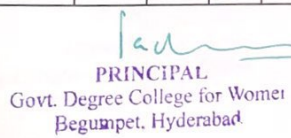 PRINCIPAL
Govt. Degree College for Women
Begumpet, Hyderabad